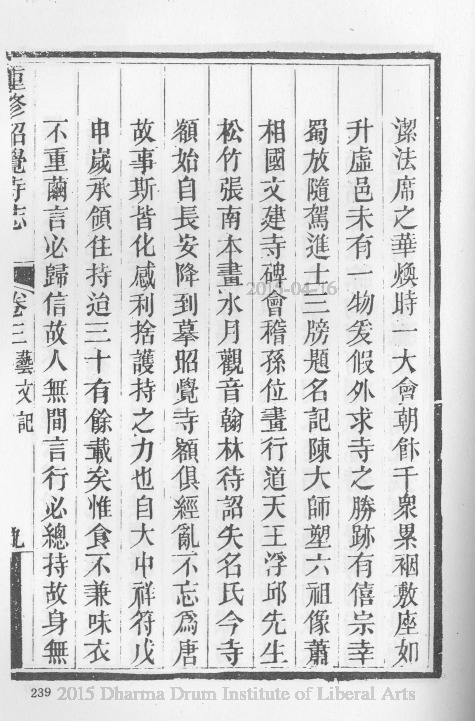 潔法席之華煥時一大會朝餙千衆累裀敷座如
升虛邑未有一物爰假外求寺之勝跡有僖宗幸
蜀放隨駕進士三牓題名記陳大師塑六祖像蕭
相國文建寺碑會稽孫位畫行道天王浮邱先生
松竹張南本畫水月觀音翰林待詔失名氏今寺
額始自長安降到摹昭覺寺額俱經亂不忘爲唐
故事斯皆化感利捨護持之力也自大中祥符戊
申歲承領住持迨三十有餘載矣惟食不兼味衣
不重繭言必歸信故人無間言行必總持故身無
重修昭覺寺志
卷三藝文記
九
2015-04-16
239 2015 Dharma Drum Institute of Liberal Arts